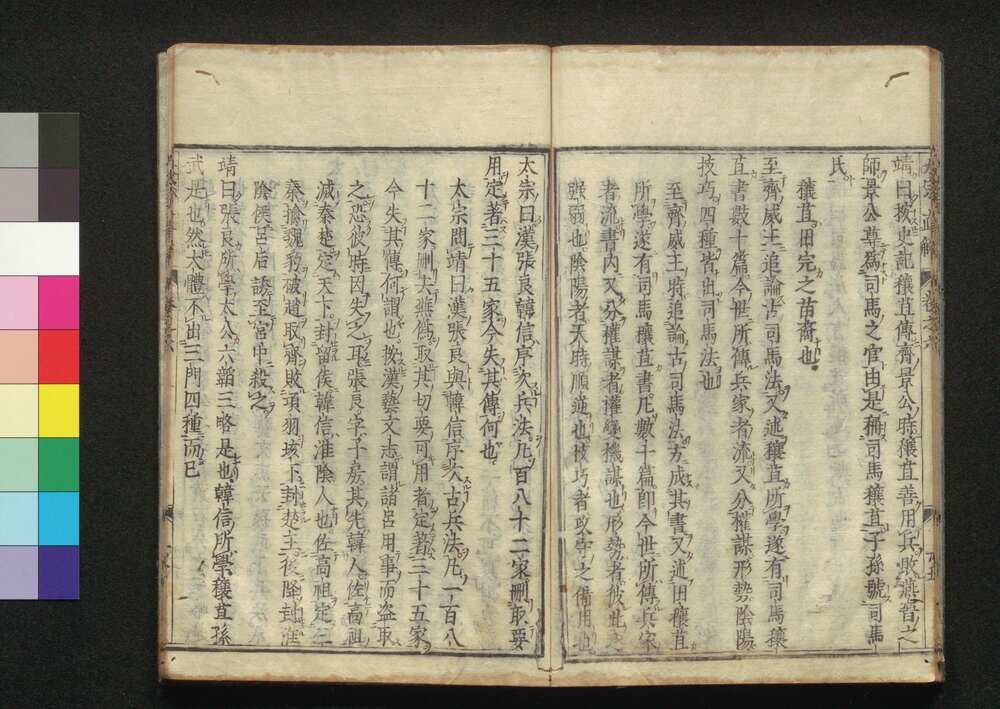 靖曰按史記穰苴傳齊景公時穰苴善用兵敗燕晉之
師景公尊爲司馬之官由是稱司馬穰苴子孫號司馬
氏
穰苴田完之苗裔也
至齊威王追論古司馬法又述穰苴所學遂有司馬穰
苴書數十篇今世所傳兵家者流又分權謀形勢陰陽
技巧四種皆出司馬法也
至齊威王時追論古司馬法方成其書又述田穰苴
所學遂有司馬穰苴書凡數十篇即今世所傳兵家
者流書内又分權謀者權變機謀也形勢者彼此之
強弱也陰陽者天時順逆也技巧者攻守之備用也
太宗曰漢張良韓信序次兵法凡百八十二家刪取要
用定著三十五家今失其傳何也
太宗問靖曰漢張良與韓信序次古兵法凡一百八
十二家刪去無偽取其切要可用者定著三十五家
今失其傳何謂也按漢藝文志謂諸呂用事而盗取
之恐彼時因失之耳張良字子房其先韓人佐高祖
滅秦楚定天下封留侯韓信淮陰人也佐高祖定三
秦擒魏豹破趙取齊敗項羽垓下封楚王後降封淮
陰侯呂后誘至宮中殺之
靖曰張良所學太公六韜三略是也韓信所學穰苴孫
武是也然大體不出三門四種而已